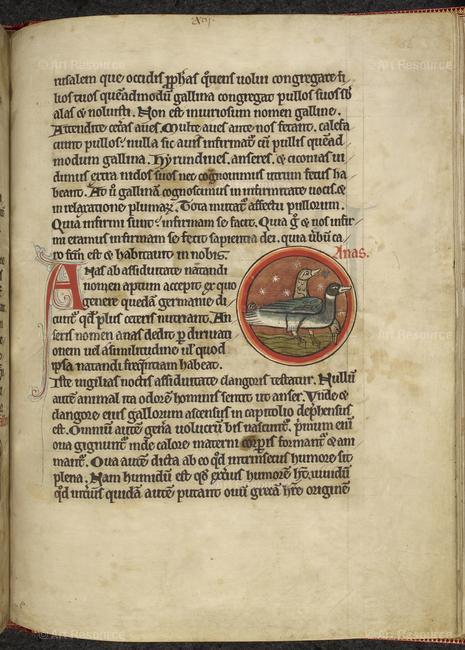 rusalem que occidis ꝓphas q̃tiens uolui congregare fi
lios tuos quẽadmodũ gallina congregat pullos suos sb
alas ⁊ noluisti. Non est iniuriosum nomen galline.
Attendite cet̃as aues. Multe aues ante nos fetant. calefa
ciunt pullos. nulla sic auis infirmat̃ cũ pullis quẽad
modum gallina. Hyrundines. anseres. ⁊ ciconias ui
dimus extra nidos suos nec cognouimus utrum fetus ha
beant. At ũ gallinã cognoscimus in infirmitate uocis. ⁊
in relaxatione plumaꝝ. Tota mutat̃ affectu pullorum.
Quia infirmi sunt infirmam se facit. Quia g̃ ⁊ nos infir
mi eramus infirmam se fecit sapientia dei. quia ũbũ ca
ro fc̃m est ⁊ habitauit in nobis.
Anas.
Anas ab assiduitate natandi
nomen aptum accepit ex quo
genere quedã germanie di
cunt̃ qd̃ plus ceteris nutriant. An
seris nomen anas dedit ꝑ diriuati
onem uel a similitudine ul̃ quod
ipsa natandi freq̃ntiam habeat.
Iste uigilias noctis assiduitate clangoris testatur. Nullũ
autẽ animal ita odorẽ hominis sentit ut anser. Vnde ⁊
clangore eius gallorum ascensus in capitolio dephensus
est. Omniũ autẽ gena uolucrũ bis nascunt̃. p̃mum eni
oua gignunt̃ inde calore materni corpis formant̃ ⁊ ani
mant̃. Oua autẽ dicta ab eo qd̃ intrinsecus humore sit
plena. Nam humidũ est qd̃ ext̃ius humorẽ ht̃. uuidũ
qd̃ int̃ius quidã autẽ putant ouũ grecã hr̃e originẽ
© Art Resource
© Art Resource
© Art Resource
© Art Resource